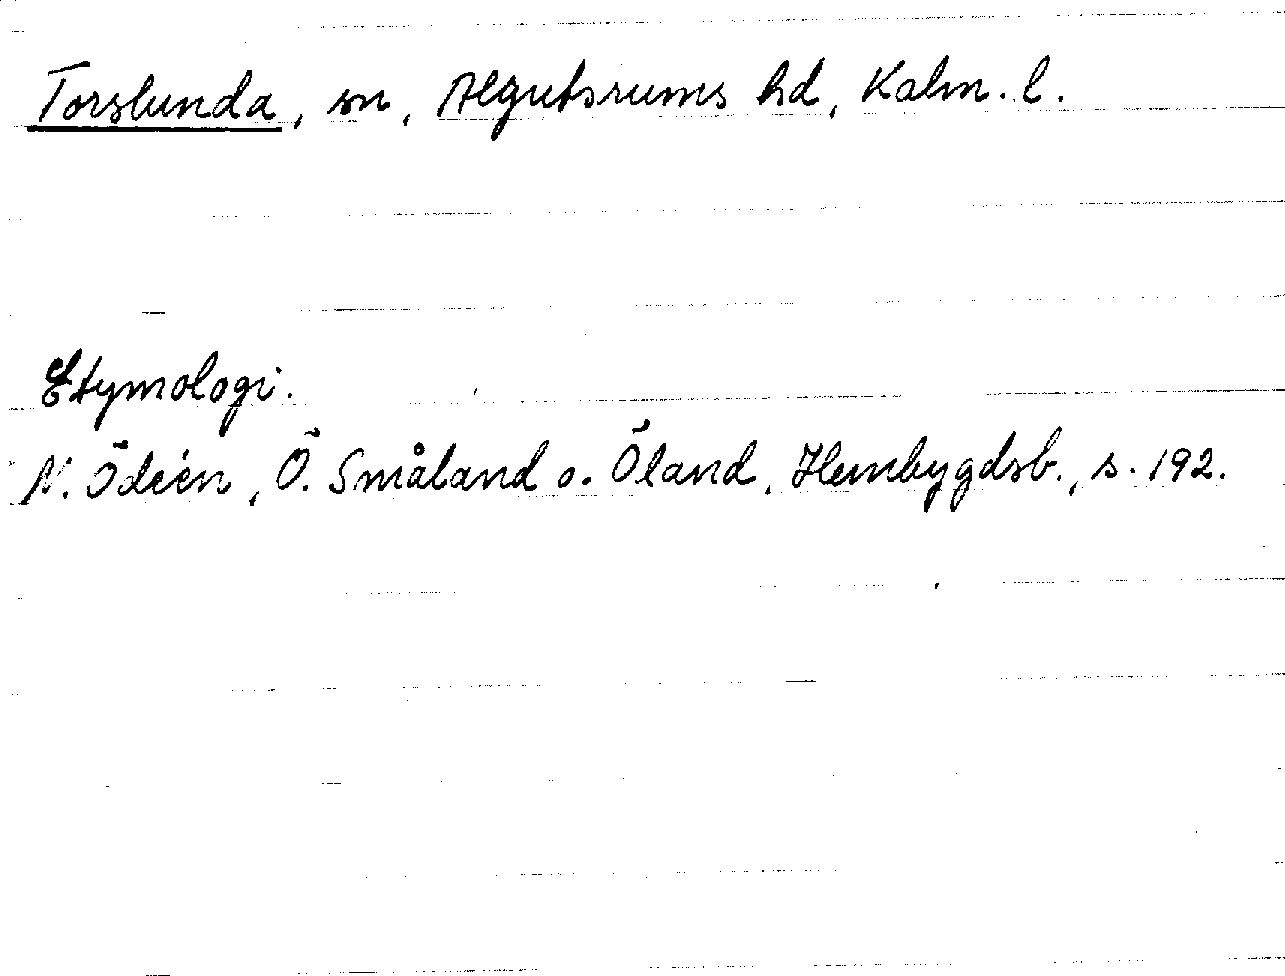 Torslunda, sn, Algutsrums hd, Kalm. l.
Etymologi.
N. Ödéen, Ö. Småland o. Öland, Hembygdsb., s. 192.